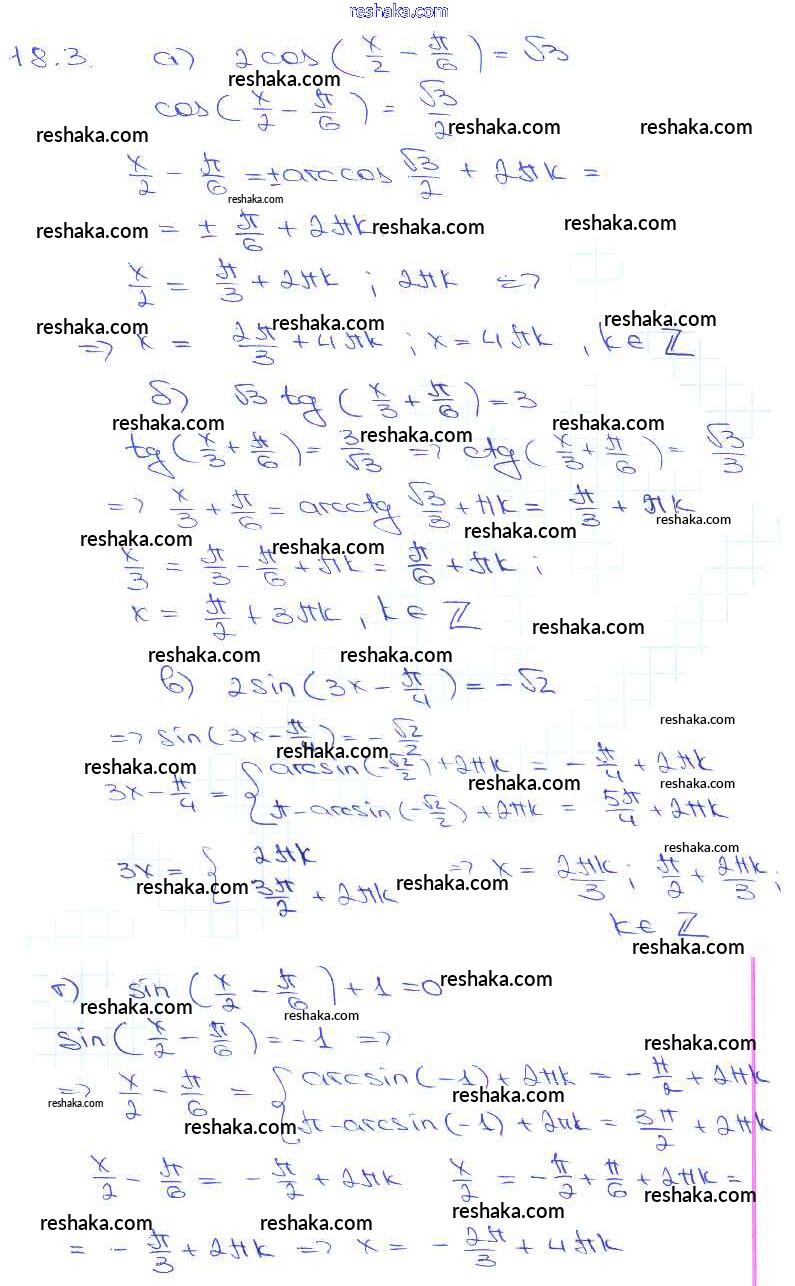 reshaka.com
18.3. а) 2cos(x/2 - π/6) = √3
reshaka.com
cos(x/2 - π/6) = √3/2
reshaka.com reshaka.com reshaka.com
x/2 - π/6 = ± arccos √3/2 + 2πk =
reshaka.com
= ± π/6 + 2πk
reshaka.com reshaka.com reshaka.com
x/2 = π/3 + 2πk ; 2πk =>
reshaka.com reshaka.com reshaka.com
=> x = 2π/3 + 4πk ; x = 4πk , k ∈ ℤ
б) √3 tg(x/3 + π/6) = 3
reshaka.com reshaka.com reshaka.com
tg(x/3 + π/6) = 3/√3 => ctg(x/3 + π/6) = √3/3
=> x/3 + π/6 = arcctg √3/3 + πk = π/3 + πk
reshaka.com reshaka.com reshaka.com reshaka.com
x/3 = π/3 - π/6 + πk = π/6 + πk ;
x = π/2 + 3πk , k ∈ ℤ
reshaka.com
reshaka.com reshaka.com
в) 2sin(3x - π/4) = -√2
reshaka.com
=> sin(3x - π/4) = -√2/2
reshaka.com reshaka.com reshaka.com reshaka.com
3x - π/4 = { arcsin(-√2/2) + 2πk = -π/4 + 2πk
π - arcsin(-√2/2) + 2πk = 5π/4 + 2πk
reshaka.com
3x = { 2πk => x = 2πk/3 ; π/2 + 2πk/3 ;
3π/2 + 2πk
reshaka.com reshaka.com
k ∈ ℤ
reshaka.com
г) sin(x/2 - π/6) + 1 = 0
reshaka.com reshaka.com reshaka.com
sin(x/2 - π/6) = -1 =>
reshaka.com
=> x/2 - π/6 = { arcsin(-1) + 2πk = -π/2 + 2πk
reshaka.com reshaka.com
π - arcsin(-1) + 2πk = 3π/2 + 2πk
reshaka.com
x/2 - π/6 = -π/2 + 2πk x/2 = -π/2 + π/6 + 2πk =
reshaka.com reshaka.com reshaka.com reshaka.com
= -π/3 + 2πk => x = -2π/3 + 4πk